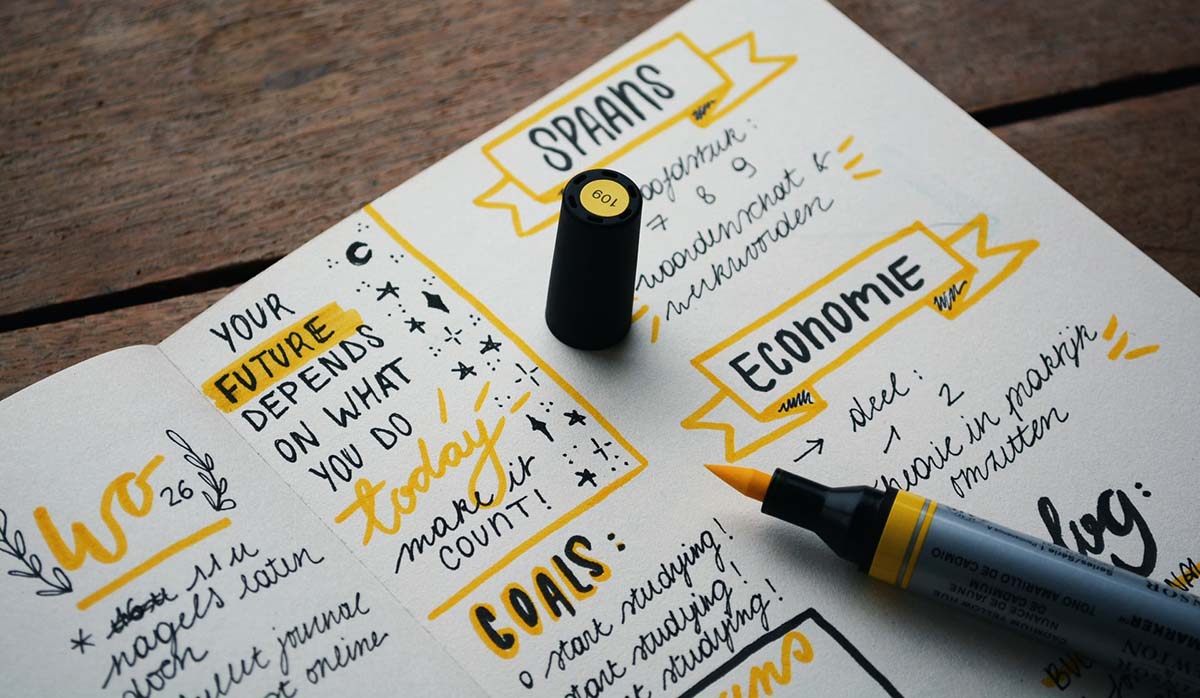 Wo 26
11 u
nagels laten
doen
journal
online
YOUR
FUTURE
DEPENDS
ON WHAT
YOU DO
today
make it
COUNT!
GOALS:
o start studying!
start studying!
studying!
SPAANS
hoofdstuk:
7 8 9
woordenschat &
werkwoorden
109
ECONOMIE
→ deel:
1 2
theorie in praktijk
omzetten
Series/Série 1
CADMIUM YELLOW HUE
NUANCE DE JAUNE
DE CADMIUM
TONO AMARILLO DE CADMIO